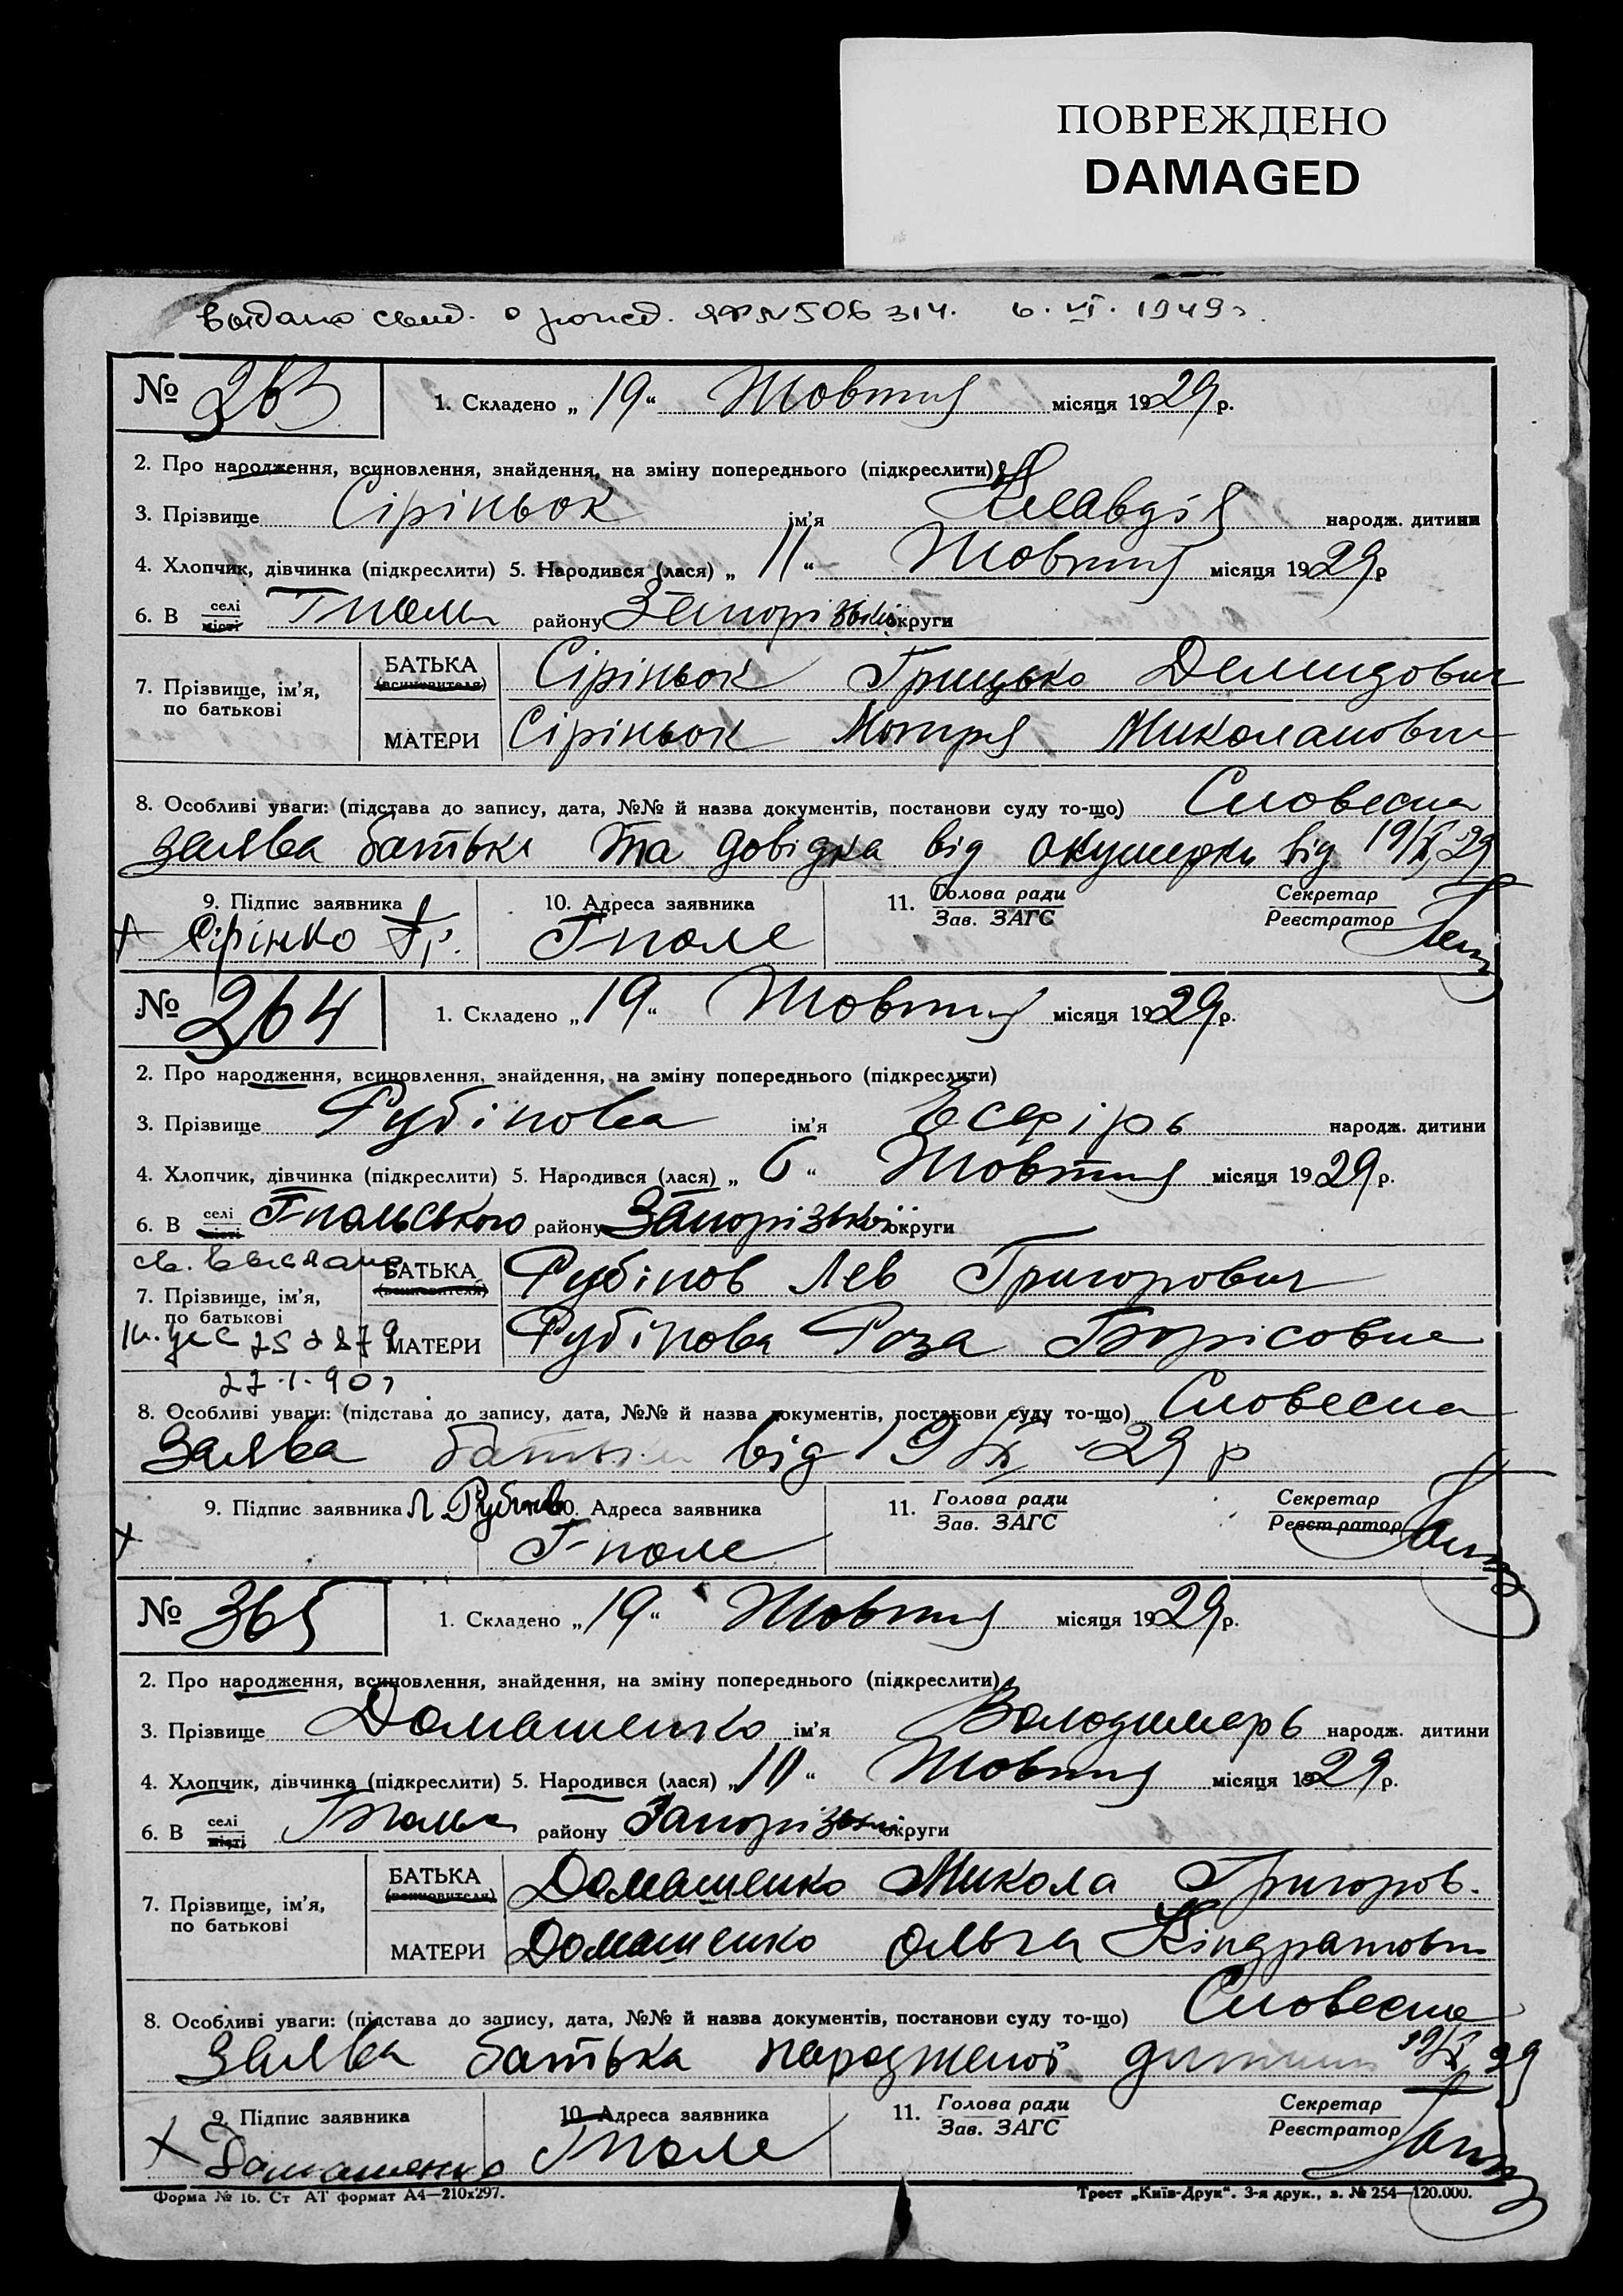 ПОВРЕЖДЕНО
DAMAGED
видано свид. о рожд. ЯФ№506314. 6. VI. 1949г.
№ 263
1. Складено „19“ Жовтня місяця 1929 р.
2. Про народження, всиновлення, знайдення, на зміну попереднього (підкреслити)
3. Прізвище Сіріньок ім’я Клавдія народж. дитини
4. Хлопчик, дівчинка (підкреслити) 5. Народився (лася) „11“ Жовтня місяця 1929 р
6. В селі місті Гполе району Запорізької округи
7. Прізвище, ім’я, по батькові
БАТЬКА (всиновителя) Сіріньок Грицько Демидович
МАТЕРИ Сіріньок Мотря Миколановна
8. Особливі уваги: (підстава до запису, дата, №№ й назва документів, постанови суду то-що) Словесна
заява батька та довідка від акушерки від 19/X 29
9. Підпис заявника 10. Адреса заявника 11. Голова ради Зав. ЗАГС Секретар Реєстратор
Сірінко Гр. Гполе
№ 264
1. Складено „19“ Жовтня місяця 1929 р.
2. Про народження, всиновлення, знайдення, на зміну попереднього (підкреслити)
3. Прізвище Рубінова ім’я Есфірь народж. дитини
4. Хлопчик, дівчинка (підкреслити) 5. Народився (лася) „6“ Жовтня місяця 1929 р.
6. В селі місті Гпольського району Запорізької округи
св. выдано
7. Прізвище, ім’я, по батькові
БАТЬКА (всиновителя) Рубінов Лев Григорович
МАТЕРИ Рубінова Роза Борісовна
27.1.90г
8. Особливі уваги: (підстава до запису, дата, №№ й назва документів, постанови суду то-що) Словесна
Заява батька від 19/X 29 р
9. Підпис заявника Л Рубинов 10. Адреса заявника 11. Голова ради Зав. ЗАГС Секретар Реєстратор
Гполе
№ 365
1. Складено „19“ Жовтня місяця 1929 р.
2. Про народження, всиновлення, знайдення, на зміну попереднього (підкреслити)
3. Прізвище Домашенко ім’я Володимерь народж. дитини
4. Хлопчик, дівчинка (підкреслити) 5. Народився (лася) „10“ Жовтня місяця 1929 р.
6. В селі місті Гполе району Запорізької округи
7. Прізвище, ім’я, по батькові
БАТЬКА (всиновителя) Домашенко Микола Григоров.
МАТЕРИ Домашенко Ольга Кіндратовн
8. Особливі уваги: (підстава до запису, дата, №№ й назва документів, постанови суду то-що) Словесна
Заява батька народженої дитини 19/X 29
9. Підпис заявника 10. Адреса заявника 11. Голова ради Зав. ЗАГС Секретар Реєстратор
Домашенко Гполе
Форма № 16. Ст АТ формат А4—210х297.
Трест „Київ-Друк“. 3-я друк., з. № 254—120.000.